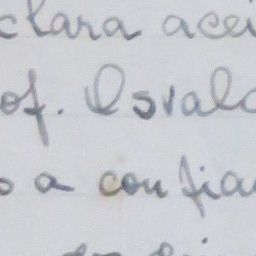 clara acei
of. Osvald
o a confian